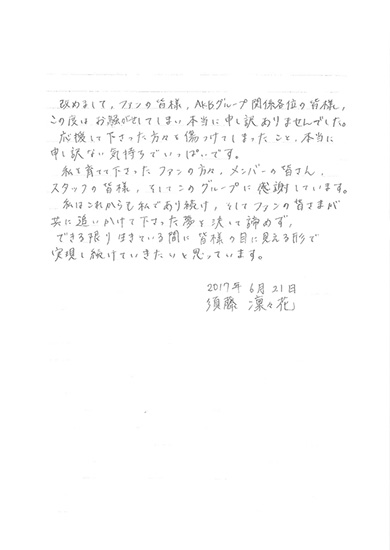 改めまして、ファンの皆様、AKBグループ関係各位の皆様、
この度は お騒がせしてしまい 本当に申し訳ありませんでした。
応援して下さった方々を傷つけてしまったこと、本当に
申し訳ない気持ちでいっぱいです。
私を育てて下さった ファンの方々、メンバーの皆さん、
スタッフの皆様、そしてこのグループに感謝しています。
私はこれからも私であり続け、そしてファンの皆さまが
共に追いかけて下さった夢を決して諦めず、
できる限り生きている間に皆様の目に見える形で
実現し続けていきたいと思っています。
2017年 6月 21日
須藤 凜々花